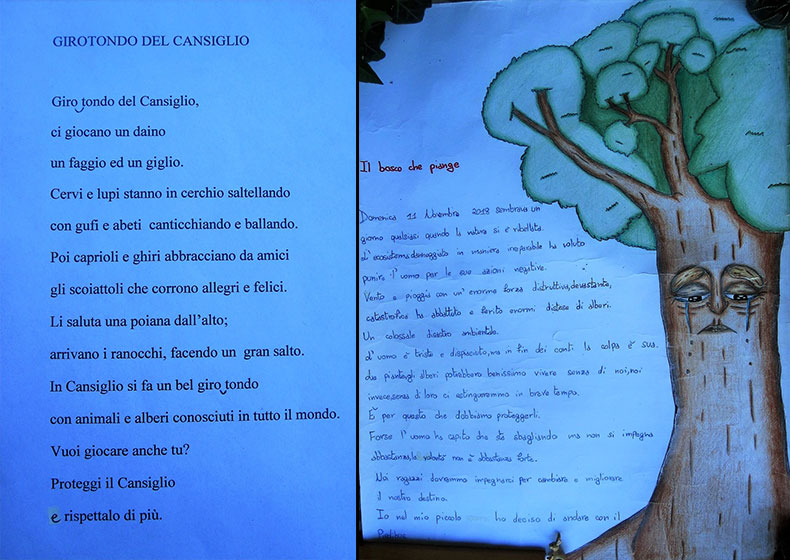 GIROTONDO DEL CANSIGLIO
Giro tondo del Cansiglio,
ci giocano un daino
un faggio ed un giglio.
Cervi e lupi stanno in cerchio saltellando
con gufi e abeti canticchiando e ballando.
Poi caprioli e ghiri abbracciano da amici
gli scoiattoli che corrono allegri e felici.
Li saluta una poiana dall'alto;
arrivano i ranocchi, facendo un gran salto.
In Cansiglio si fa un bel giro tondo
con animali e alberi conosciuti in tutto il mondo.
Vuoi giocare anche tu?
Proteggi il Cansiglio
e rispettalo di più.
Il bosco che piange
Domenica 11 Novembre 2018 sembrava un
giorno qualsiasi quando la natura si è ribellata.
L'ecosistema, danneggiato in maniera irreparabile ha voluto
punire l'uomo per le sue azioni negative.
Vento e pioggia con un'enorme forza distruttiva, devastante,
catastrofica ha abbattuto e ferito enormi distese di alberi.
Un colossale disastro ambientale.
L'uomo è triste e dispiaciuto, ma in fin dei conti la colpa è sua.
piante gli alberi potrebbero benissimo vivere senza di noi, noi
invece, senza di loro ci estingueremmo in breve tempo.
È per questo che dobbiamo proteggerli.
Forse l'uomo ha capito che sta sbagliando ma non si impegna
abbastanza, la volontà non è abbastanza forte.
Noi ragazzi dovremmo impegnarci per cambiare e migliorare
il nostro destino.
Io nel mio piccolo ho deciso di andare con il